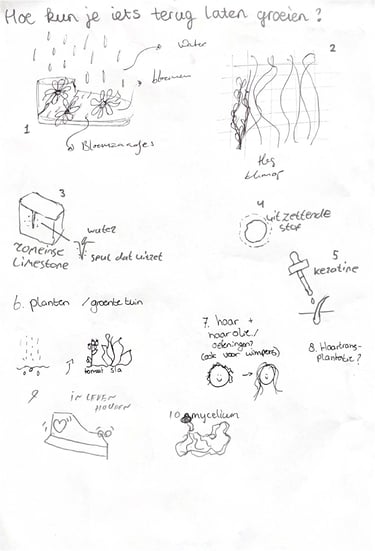 Hoe kun je iets terug laten groeien?
water
bloemen
1
Bloemzaadjes
2
Heg
klimop
3
water
spul dat uitzet
romeinse
limestone
4
uitzettende
stof
5
keratine
6. planten / groentetuin
tomaat sla
7. haar +
haarolie/
oefeningen?
(ook voor wimpers)
8. Haartrans-
plantatie?
9
in leven
houden
10 mycelium